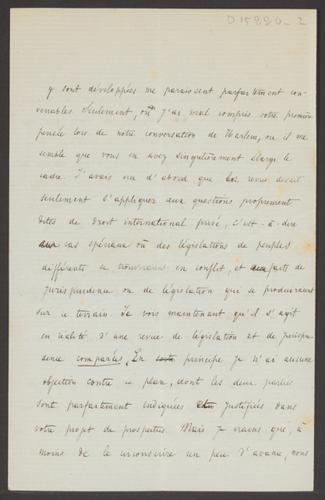 D 15880-2
y sont développées me paraissent parfaitement con-
venables. Seulement, ou j'ai mal compris votre première
pensée lors de notre conversation de Harlem, ou il me
semble que vous en avez singulièrement élargi le
cadre. J'avais cru d'abord que la revue devait
seulement s'appliquer aux questions proprement
dites de droit international privé, c'est-à-dire
aux cas spéciaux où des législations de peuples
différents se trouvaient en conflit, et aux faits de
jurisprudence ou de législation qui se produiraient
sur ce terrain. Je vois maintenant qu'il s'agit
en réalité d'une revue de législation et de jurispru-
dence comparées. En principe je n'ai aucune
objection contre ce plan, dont les deux parties
sont parfaitement indiquées et justifiées dans
votre projet de prospectus. Mais je crains que, à
moins de le circonscrire un peu d'avance, nous